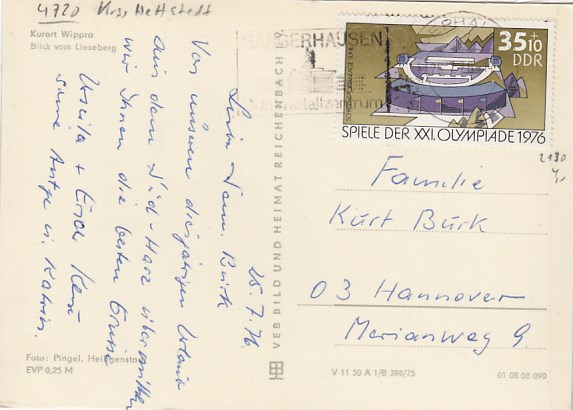 4720 Krs. Hettstedt
Kurort Wippra
Blick vom Lieseberg
25.7.76
Liebe Fam. Burk
Von unserem diesjährigen Urlaub
aus dem Süd-Harz übermitteln
wir Ihnen die besten Grüße
Ursula + Erich
sowie Antje u. Katrin.
Foto: Pingel, Heiligenstadt
EVP 0,25 M
VEB BILD UND HEIMAT REICHENBACH
SANGERHAUSEN
35+10
DDR
SPIELE DER XXI. OLYMPIADE 1976
2190
Familie
Kurt Burk
03 Hannover
Merianweg 9.
V 11 50 A 1/B 398/75
01 08 06 090